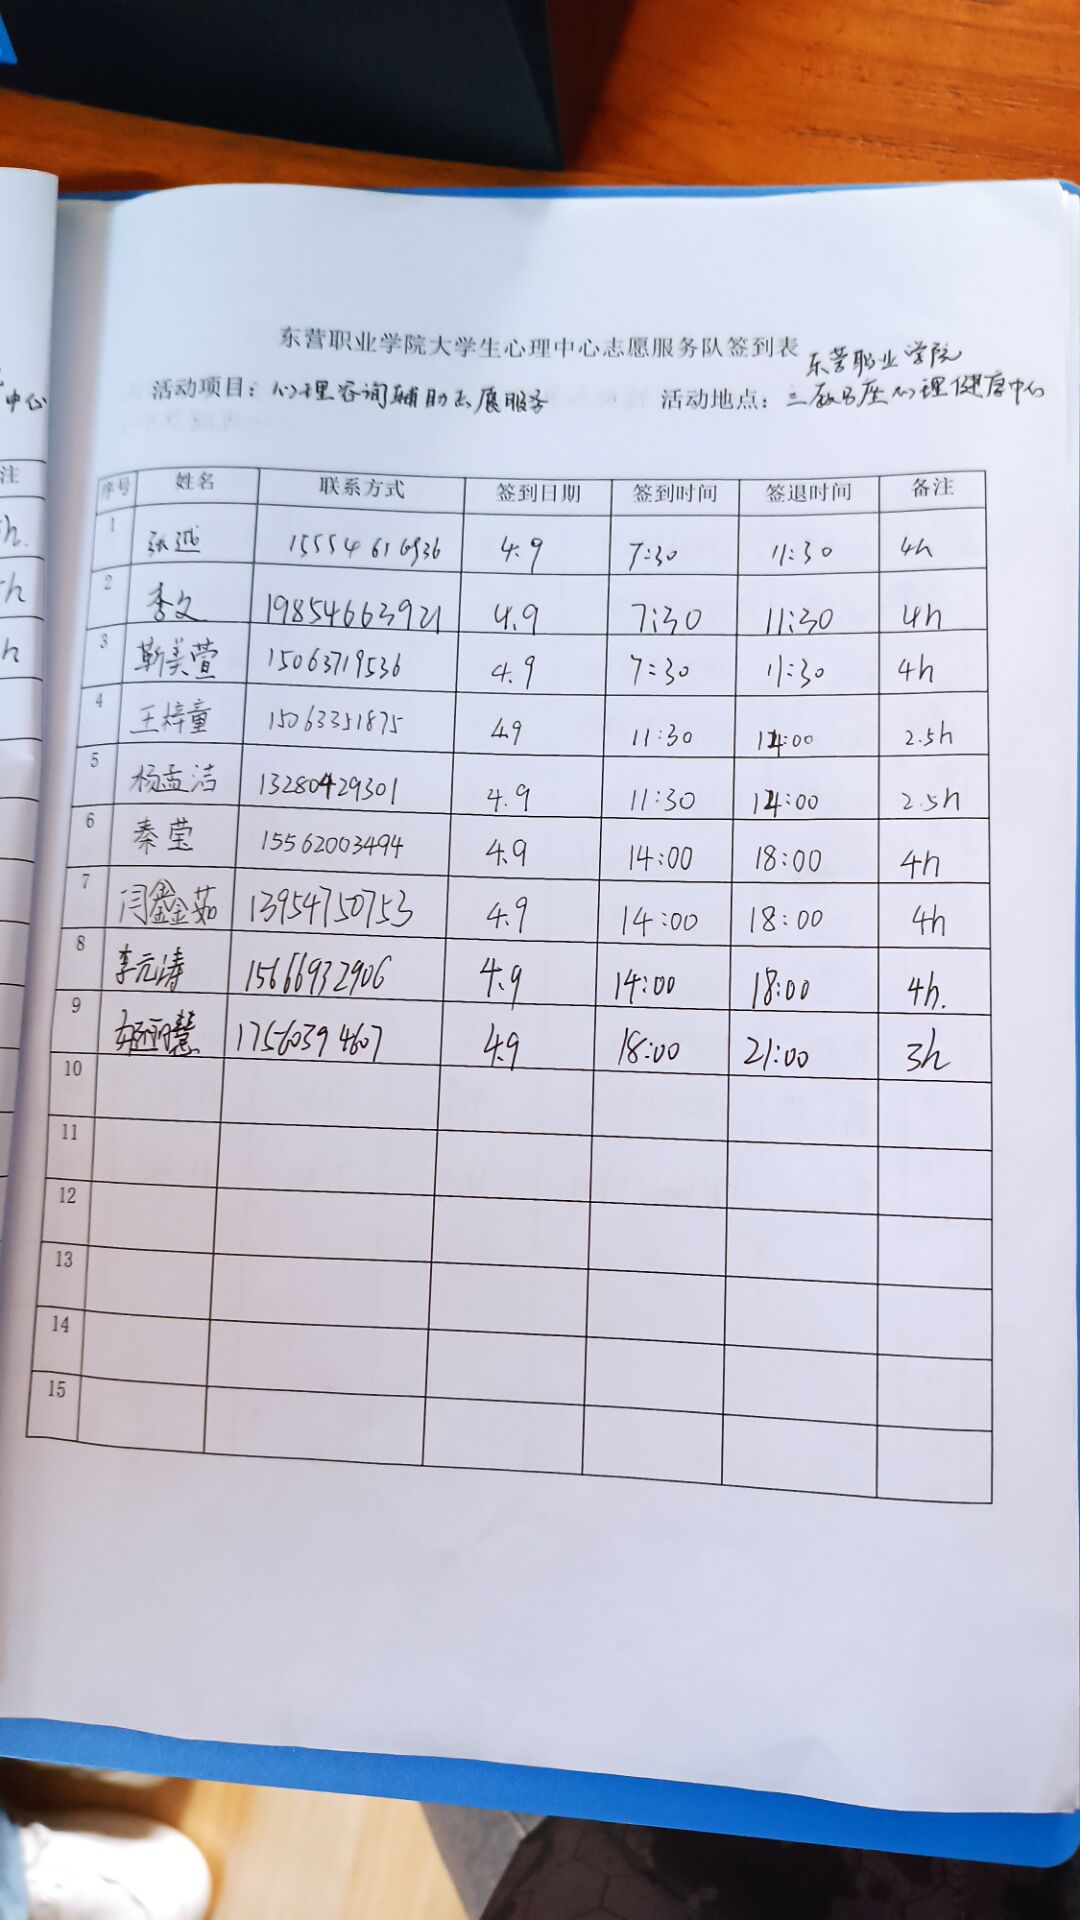 东营职业学院大学生心理中心志愿服务队签到表
东营职业学院
活动项目：心理咨询辅助拓展服务 活动地点：三教B座心理健康中心
序号 姓名 联系方式 签到日期 签到时间 签退时间 备注
1 张 4.9 7:30 11:30 4h
2 李文 19854663921 4.9 7:30 11:30 4h
3 靳美萱 15063719536 4.9 7:30 11:30 4h
4 王梓童 15063351875 4.9 11:30 14:00 2.5h
5 杨孟洁 13280429301 4.9 11:30 14:00 2.5h
6 秦莹 15562003494 4.9 14:00 18:00 4h
7 闫鑫茹 13954750753 4.9 14:00 18:00 4h
8 李元涛 15666932906 4.9 14:00 18:00 4h.
9 17560394607 4.9 18:00 21:00 3h
10
11
12
13
14
15
中心
注
h.
h
h